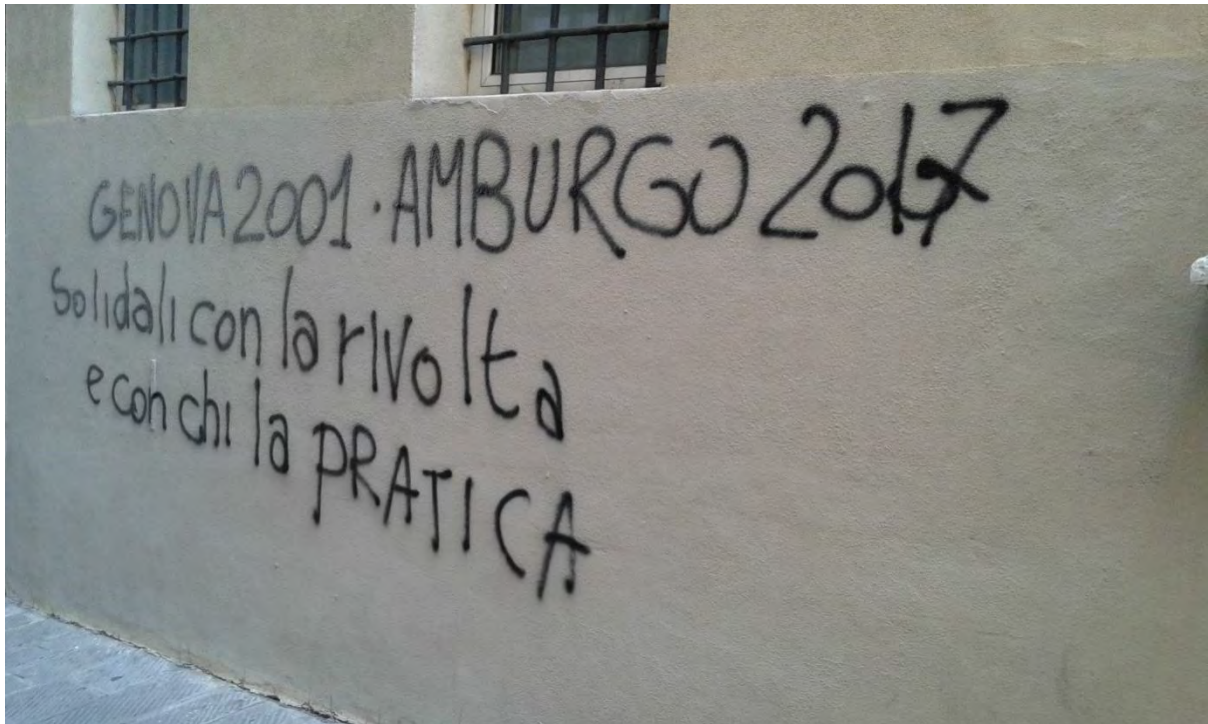 GENOVA 2001 · AMBURGO 2017
Solidali con la rivolta
e con chi la PRATICA